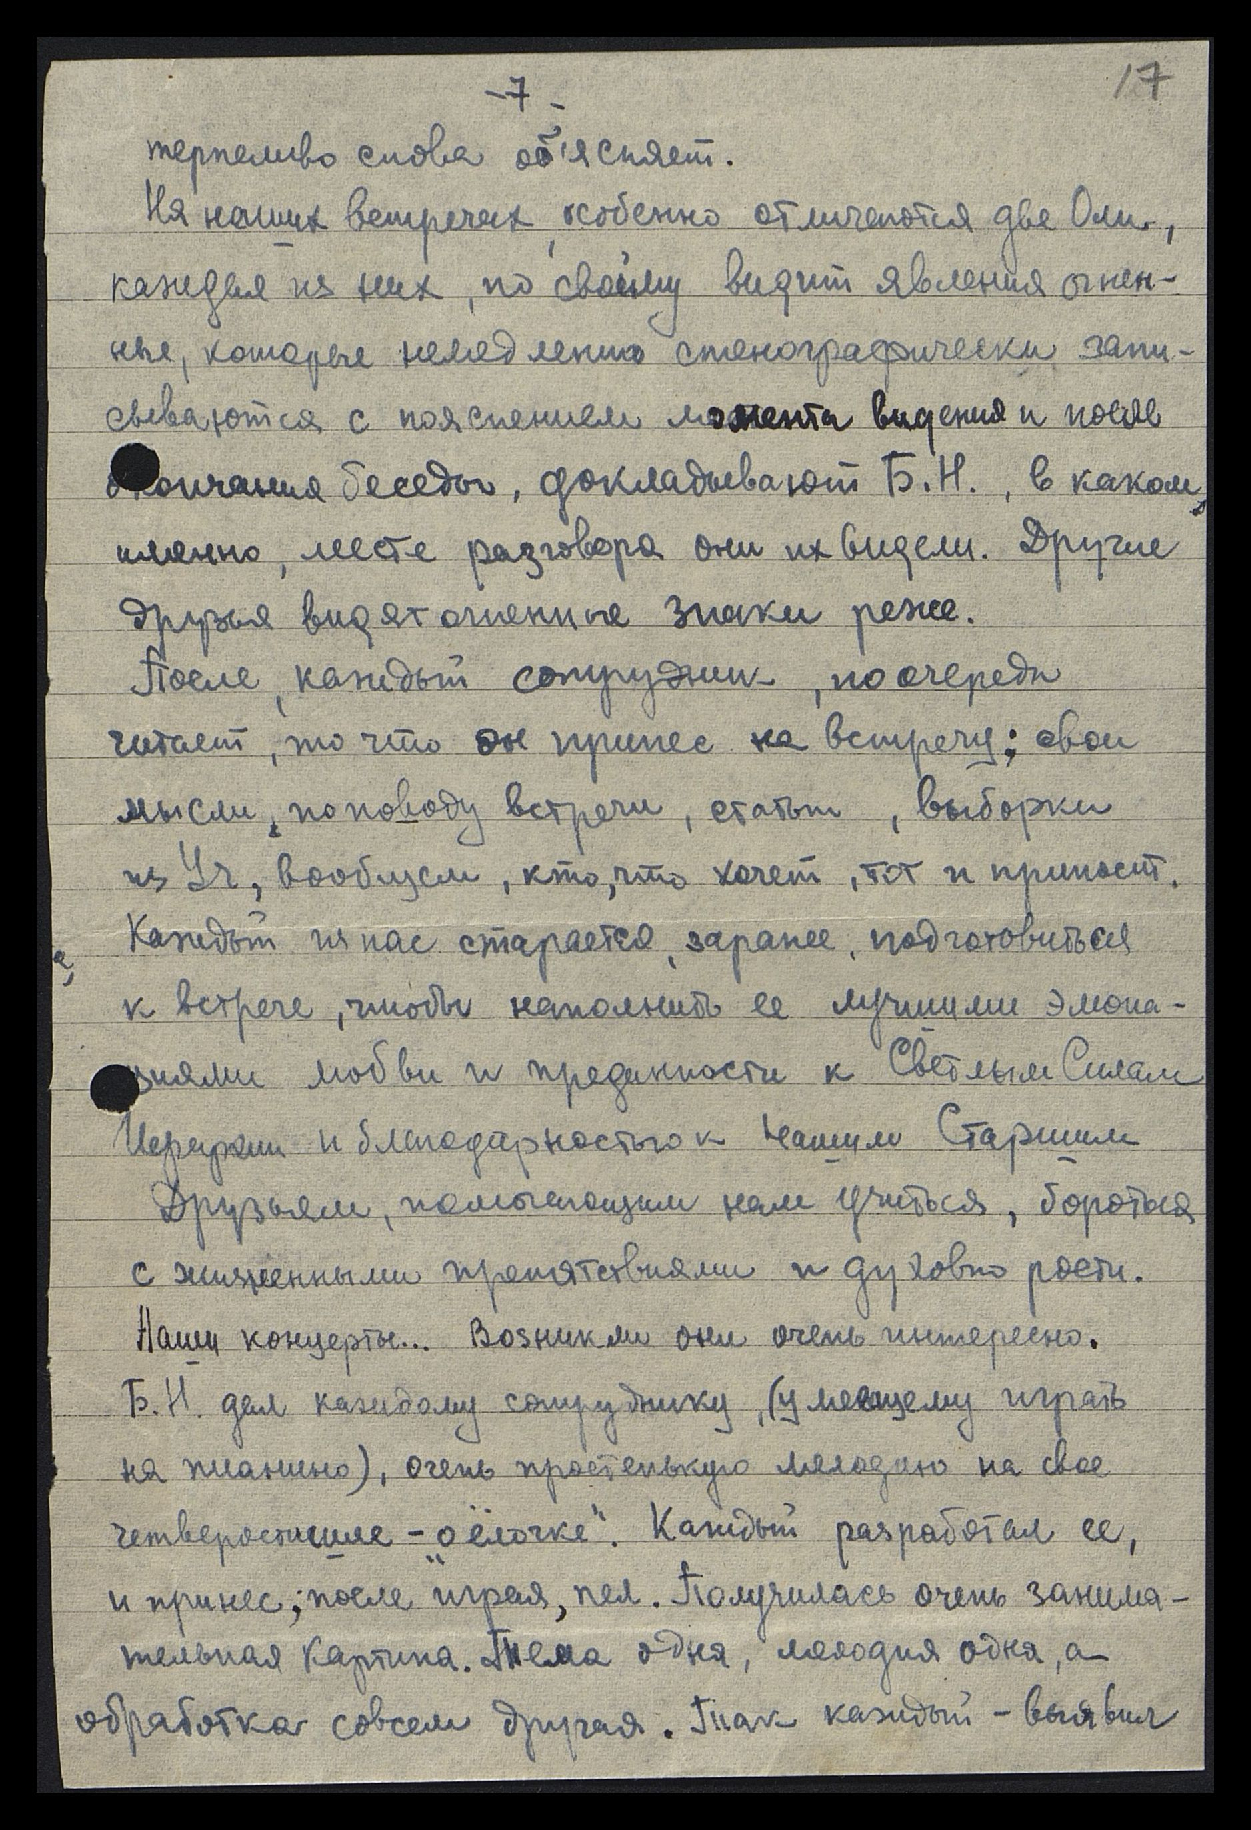 -7-
17
терпеливо снова об'ясняет.
На наших встречах, особенно отличаются две Оли,
каждая из них, по своему видит явления огнен-
ные, которые немедленно стенографически запи-
сываются с пояснением момента видения и после
окончания беседы, докладывают Б.Н., в каком,
именно, месте разговора они их видели. Другие
друзья видят огненные знаки реже.
После, каждый сотрудник, по очереди
читает, то что он принес на встречу; свои
мысли, по поводу встречи, статьи, выборки
из Уч, вообщем, кто, что хочет, тот и приносит.
Каждый из нас старается, заранее, подготовиться
к встрече, чтобы наполнить ее лучшими эмона-
циями любви и преданности к Светлым Силам
Иерархии и благодарностью к нашим Старшим
Друзьям, помогающим нам учиться, бороться
с жизненными препятствиями и духовно расти.
Наши концерты... Возникли они очень интересно.
Б.Н. дал каждому сотруднику, (умеющему играть
на пианино), очень простенькую мелодию на свое
четверостишие - о „ёлочке". Каждый разработал ее,
и принес; после играя, пел. Получилась очень занима-
тельная картина. Тема одна, мелодия одна, а
обработка совсем другая. Так каждый - выявил